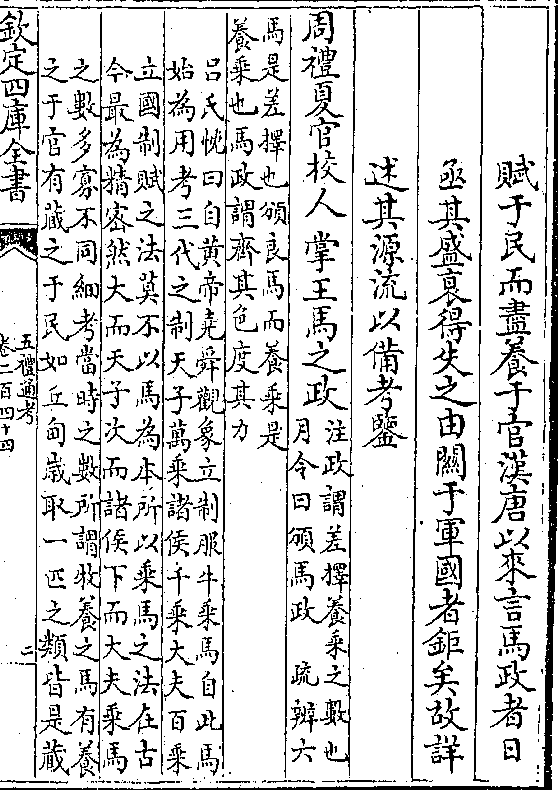 賦于民而盡養于官漢唐以來言馬政者日
亟其盛衰得失之由關于軍國者鉅矣故詳
述其源流以備考鑒
周禮夏官校人掌王馬之政
注政謂差擇養乘之數也
月令曰頒馬政 疏辨六
馬是差擇也頒良馬而養乘是
養乘也馬政謂齊其色度其力
吕氏忱曰自黄帝堯舜觀象立制服牛乘馬自此馬
始為用考三代之制天子萬乘諸侯千乘大夫百乘
立國制賦之法莫不以馬為本所以乘馬之法在古
今最為精密然大而天子次而諸侯下而大夫乘馬
之數多寡不同細考當時之數所謂牧養之馬有養
之于官有藏之于民如丘甸歲取一匹之類皆是藏
欽定四庫全書
五禮通考
卷二百四十四
二